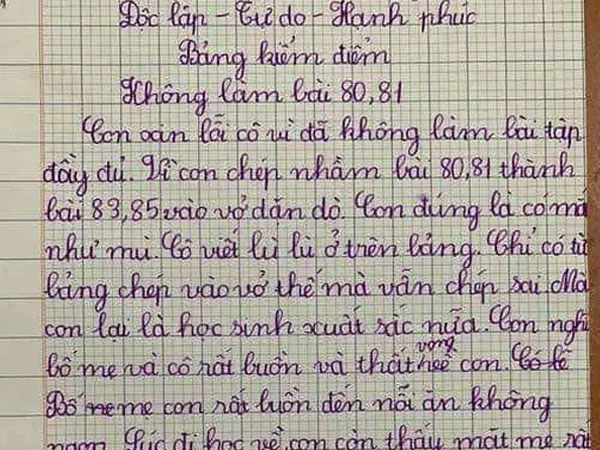 Độc lập - Tự do - Hạnh phúc
Bảng kiểm điểm
Không làm bài 80,81
Con xin lỗi cô vì đã không làm bài tập
đầy đủ. Vì con chép nhầm bài 80,81 thành
bài 83,85 vào vở dặn dò. Con đúng là có mắ
như mù. Cô viết lù lù ở trên bảng. Chỉ có từ
bảng chép vào vở thế mà vẫn chép sai. Mà
con lại là học sinh xuất sắc nữa. Con nghĩ
bố mẹ và cô rất buồn và thất vọng về con. Có lẽ
Bố mẹ con rất buồn đến nỗi ăn không
ngon. Lúc đi học về, con còn thấy mắt mẹ rất